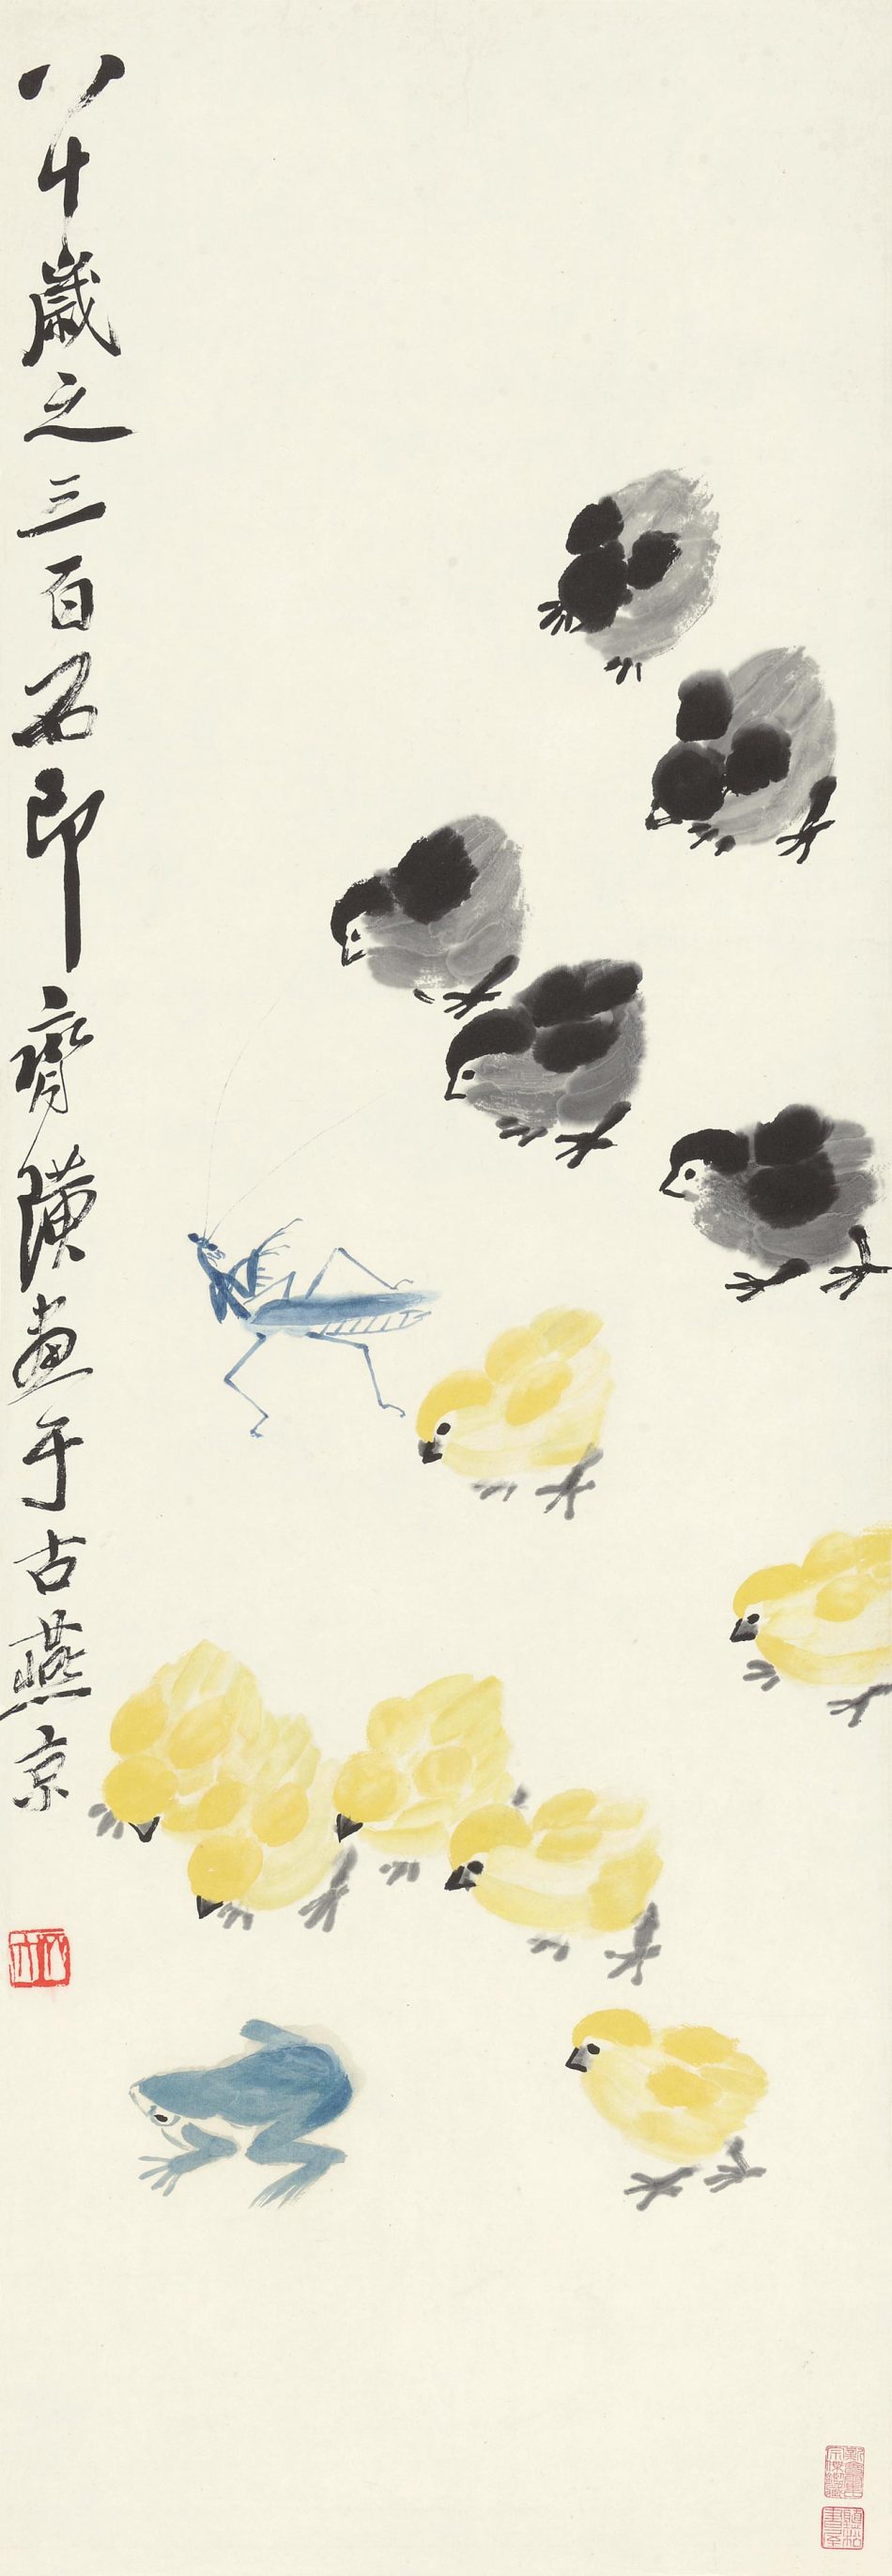 八十歲之三百石印齊璜畫于古燕京